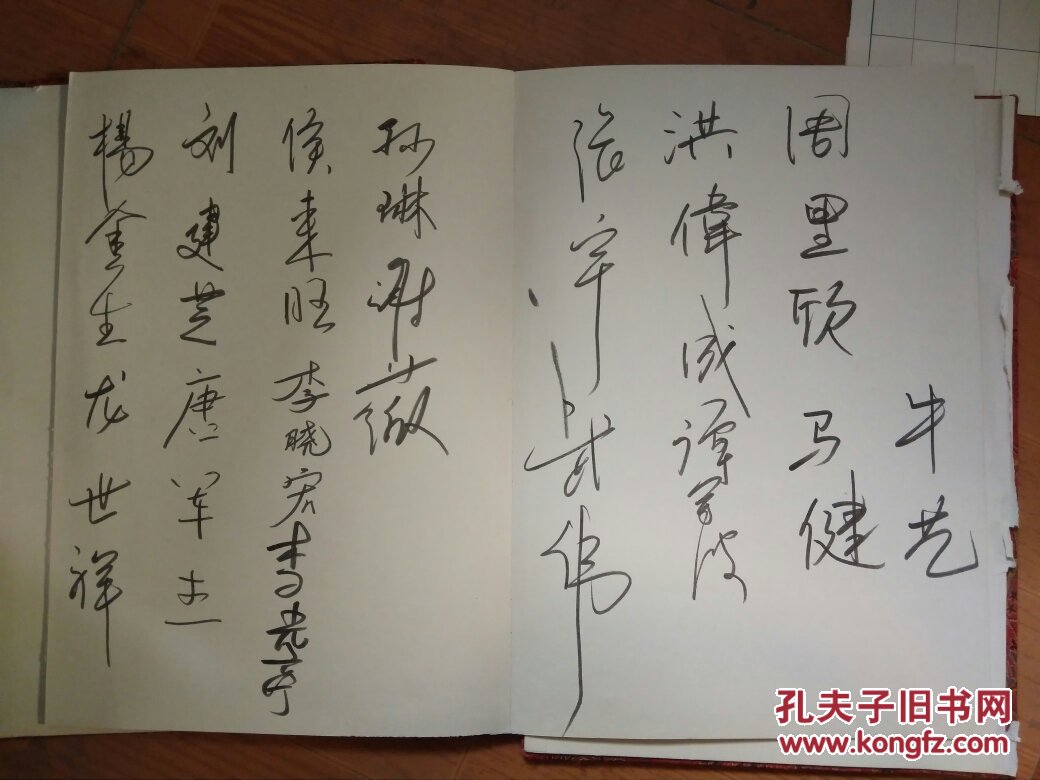 牛艺
周里欣 马健
洪偉成 谭
张宇 武伟
孙琳 谢薇
侯来旺 李晓宏 李
刘建芝 唐军
楊金生 龙世祥
孔夫子旧书网
www.kongfz.com